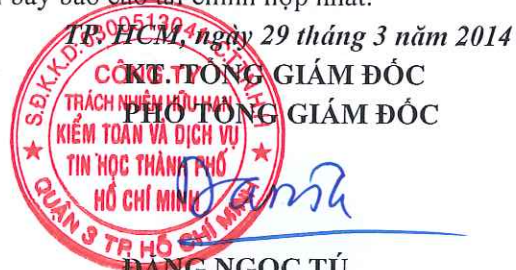 bày báo cáo tài chính hợp nhất.
TP. HCM, ngày 29 tháng 3 năm 2014
KT. TỔNG GIÁM ĐỐC
PHÓ TỔNG GIÁM ĐỐC
CÔNG TY
TRÁCH NHIỆM HỮU HẠN
KIỂM TOÁN VÀ DỊCH VỤ
TIN HỌC THÀNH PHỐ
HỒ CHÍ MINH
QUẬN 3 TP. HỒ CHÍ MINH
ĐẶNG NGỌC TÚ